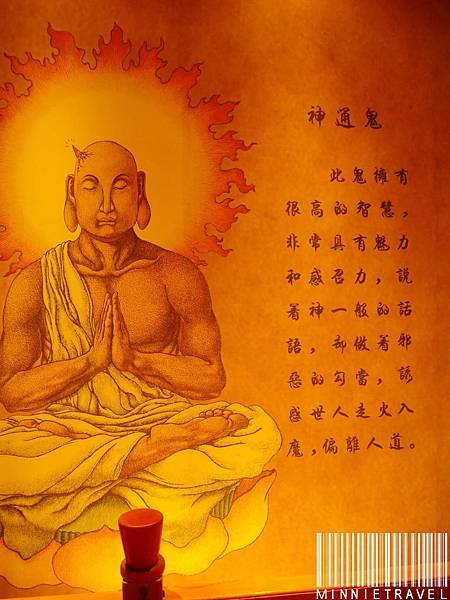 神通鬼
此鬼擁有
很高的智慧,
非常具有魅力
和感召力,說
着神一般的話
語,却做着邪
惡的勾當,誘
惑世人走火入
魔,偏離人道。
MINNIETRAVEL